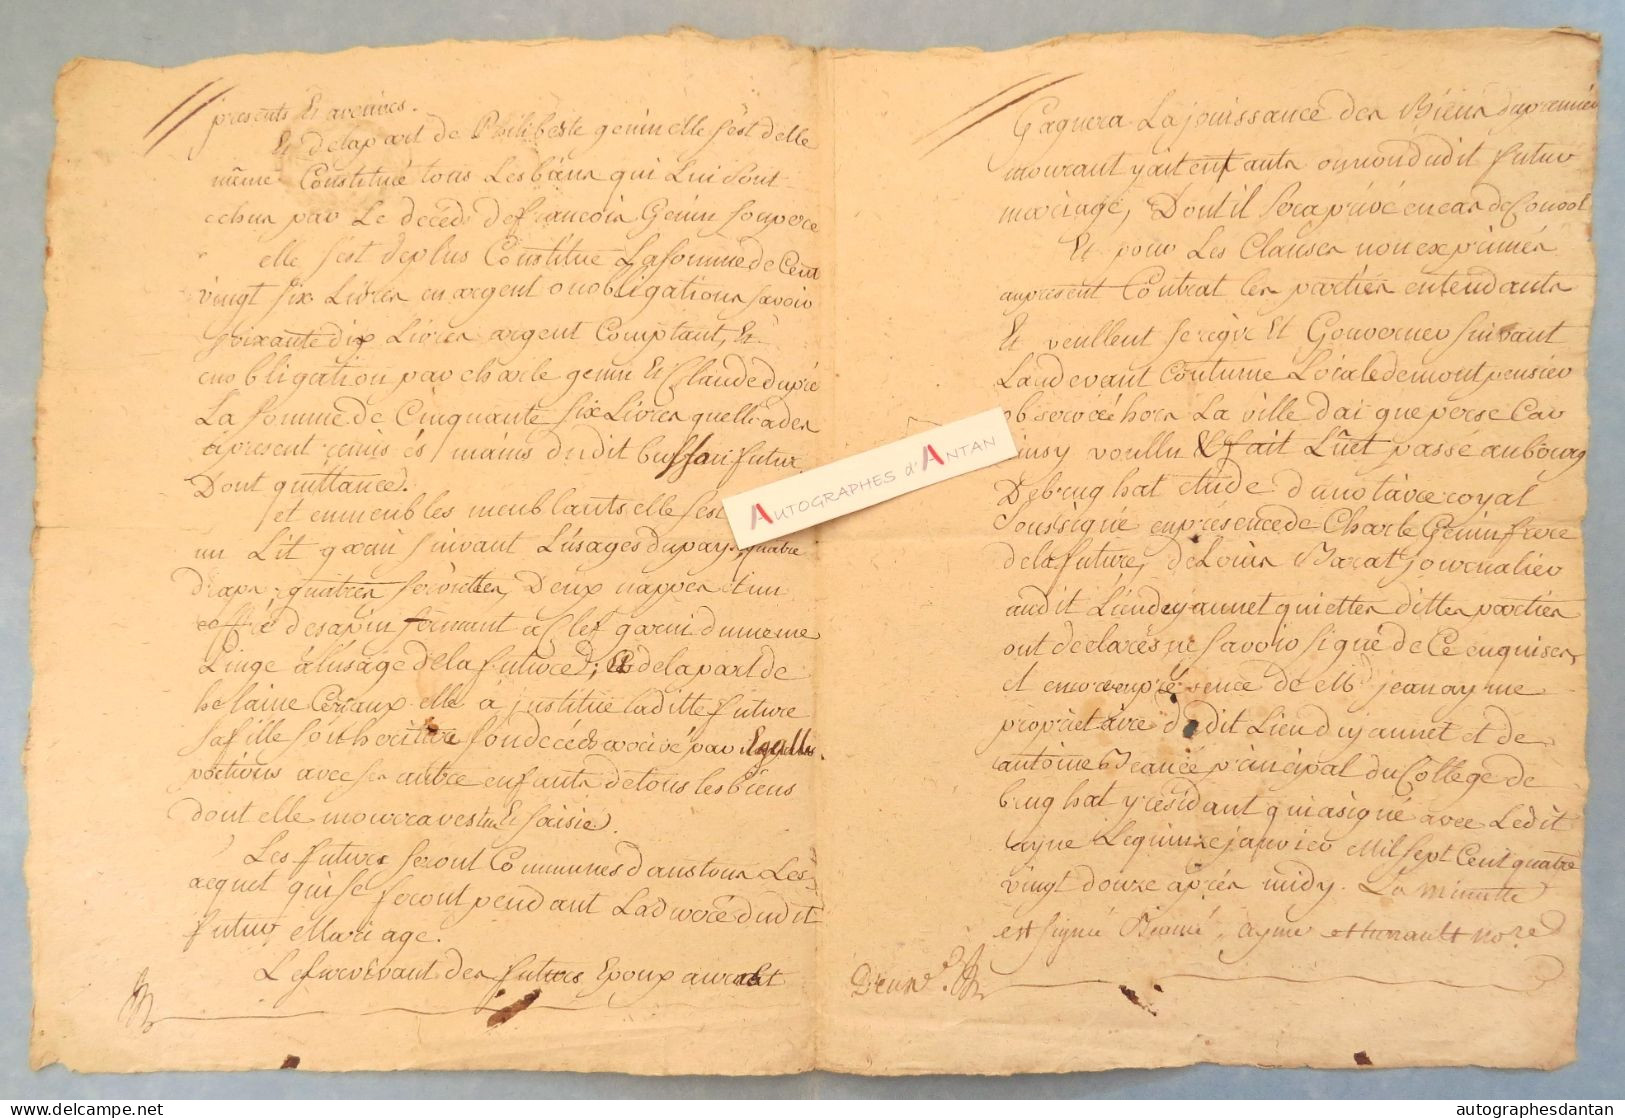 presents Et avenires.
Et delapart de Philiberte genin elle s'est d'elle
même Constitué tous Les biens qui Lui sont
echus par Le decéds de francois Genin son pere
elle s'est deplus Constitué La somme de Cent
vingt six Livres en argent ou obligations savoir
soixante dix Livres argent Comptant, Et
en obligation par charle genin Et Claude dupré
La somme de Cinquante six Livres quelle a des
apresent remis és mains dudit buffau futur
Dont quittance.
et en meubles meublants elle s'est
un Lit garni suivant L'usages du pays, quatre
draps, quatres serviettes, Deux nappes et un
coffre de sapin fermant à Clef garni dumeme
Linge à l'usage de la future; Et de la part de
helaine elle à justitué laditte future
sa fille son heritiere son decéds arrivé par Egalles
portions avec ses autre enfants de tous les biens
dont elle mourra vestue Et saisie.
Les futurs seront Communes dans tous Les
acquet qui se feront pendant La durée dudit
futur Mariage.
Le survivant des futurs Epoux aura et
Gagnera La jouissance des Biens du premier
mourant y ait enfants ou non dudit futur
mariage, Dont il sera privé en cas de Convol
Et pour Les Clauses non exprimés
au present Contrat les parties entendants
Et veullent se regir Et Gouverner suivant
Landevant Coutume Locale de montpensier
observée hors La ville d'aigueperse Car
ainsy voullu & fait L'u et passé au bourg
De brughat etude du notaire royal
soussigné en présence de Charle Genin frere
de la future, de Louis journalier
audit Lieu de jaunet qui et les dittes parties
ont declarés ne savoir signé de Ce enquises,
et encore en presence de Md jean ayme
propriétaire dudit Lieu du jaunet et de
antoine principal du College de
brughat y residant qui a signé avec Ledit
ayme Le quinze janvier Mil sept Cent quatre
vingt douze après midy. La minutte
est signé ayme et nore
AUTOGRAPHES d'ANTAN
autographesdantan